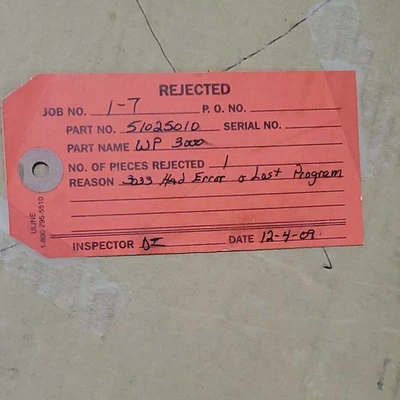 REJECTED
JOB NO. 1-7 P. O. NO.
PART NO. 51025010 SERIAL NO.
PART NAME WP 3000
NO. OF PIECES REJECTED 1
REASON 3033 Had Error o Lost Program
INSPECTOR DI DATE 12-4-09
ULINE
1-800-295-5510